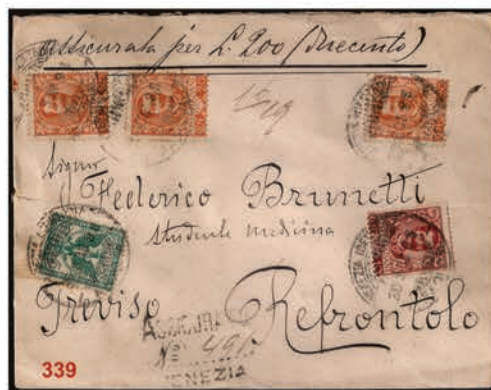 Assicurata per L. 200 (Duecento)
15/19
Signor
Federico Brunetti
studente medicina
Treviso Refrontolo
ASSICURATA
No 491
VENEZIA
339